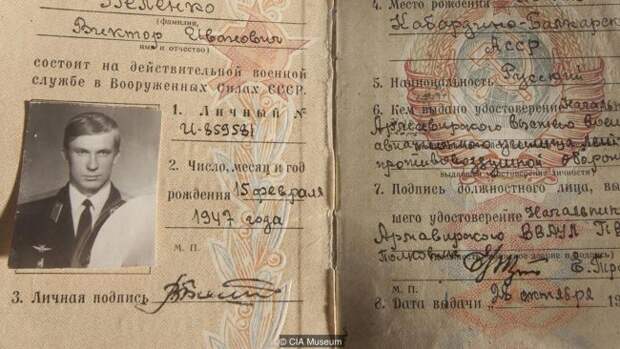 Беленко
(фамилия,
Виктор Иванович
имя и отчество)
состоит на действительной военной
службе в Вооруженных Силах СССР.
1. Личный №
И-859581
2. Число, месяц и год
рождения 15 февраля
1947 года
М. П.
3. Личная подпись
4. Место рождения
Кабардино-Балкарск
АССР
5. Национальность Русский
6. Кем выдано удостоверение Начальн
Армавирского высшего воен
авиационного училища
противовоздушной оборон
выдавшего удостоверение личности)
7. Подпись должностного лица, вы
шего удостоверение Начальник
Армавирского ВВАУЛ ПВ
полковник
М. П.
8. Дата выдачи 26 октября 19
© CIA Museum